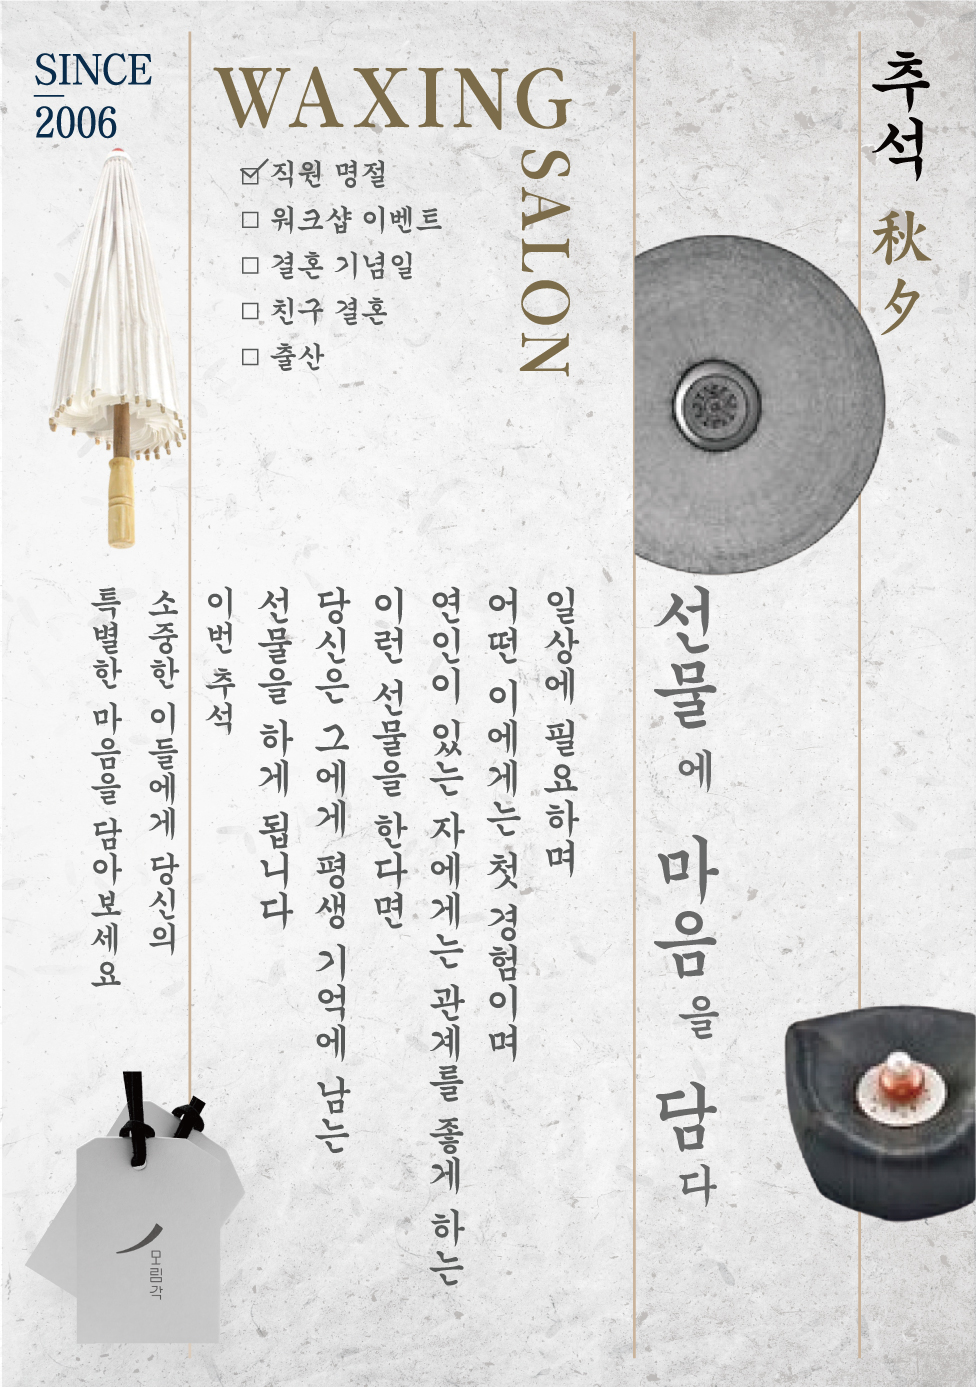 SINCE
2006
WAXING
SALON
직원 명절
워크샵 이벤트
결혼 기념일
친구 결혼
출산
추석 秋夕
선물에 마음을 담다
일상에 필요하며
어떤 이에게는 첫 경험이며
연인이 있는 자에게는 관계를 좋게 하는
이런 선물을 한다면
당신은 그에게 평생 기억에 남는
선물을 하게 됩니다
이번 추석
소중한 이들에게 당신의
특별한 마음을 담아보세요
모림각